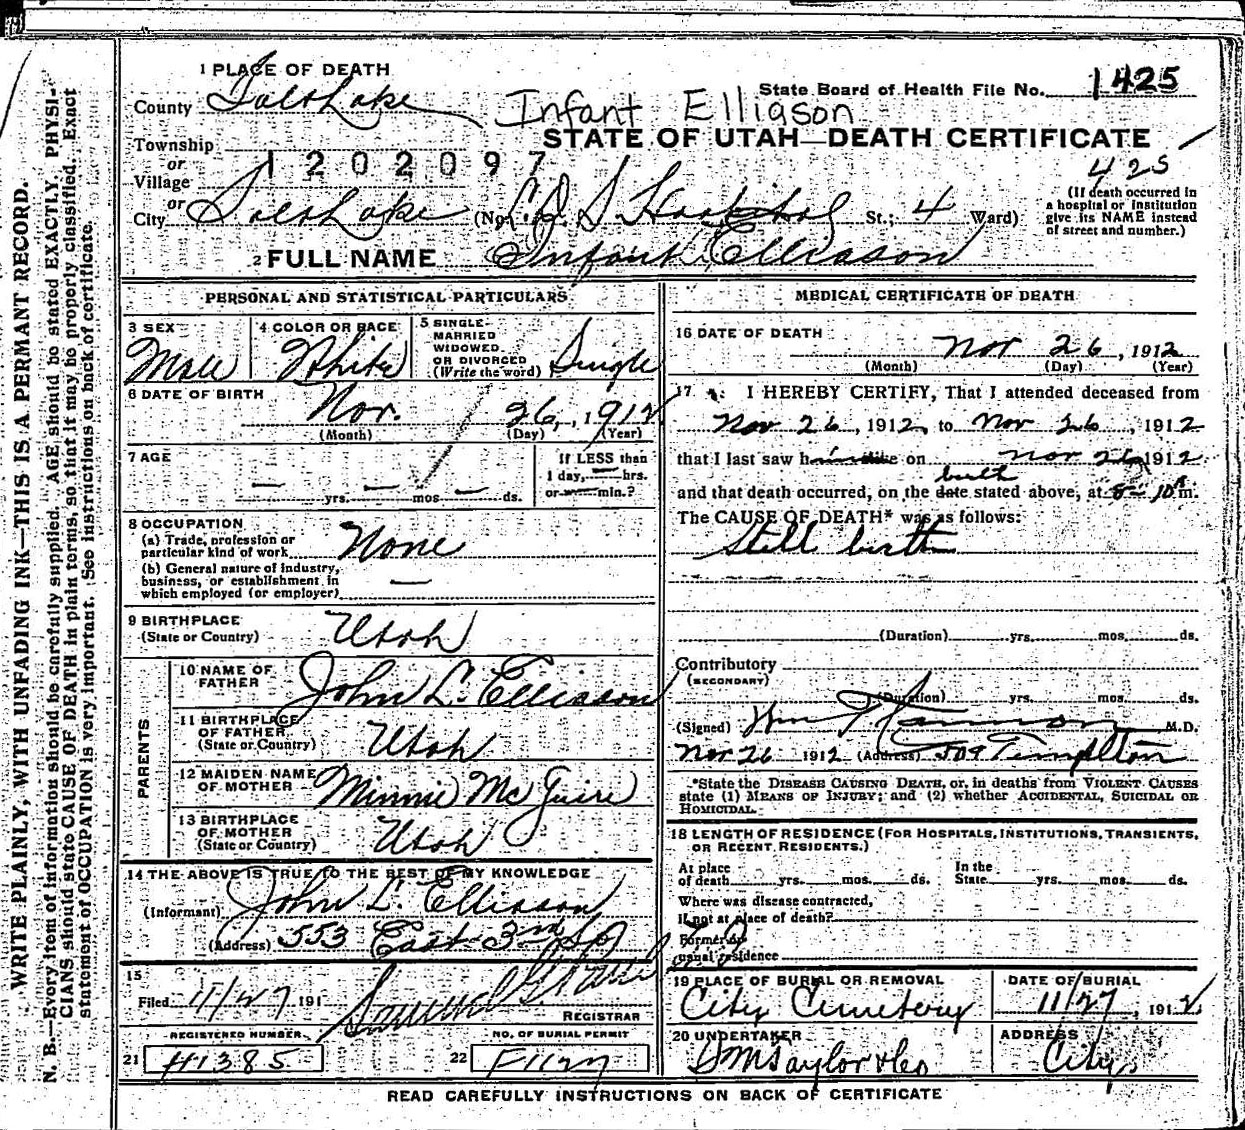 1 PLACE OF DEATH
County Salt Lake
State Board of Health File No. 1425
Infant Elliason
STATE OF UTAH—DEATH CERTIFICATE
Township
or
Village
1202097
425
or
City Salt Lake (No. L D S Hospital St.; 4 Ward)
(If death occurred in
a hospital or institution
give its NAME instead
of street and number.)
2 FULL NAME Infant Elliason
PERSONAL AND STATISTICAL PARTICULARS
3 SEX
Male
4 COLOR OR RACE
White
5 SINGLE
MARRIED
WIDOWED
OR DIVORCED
(Write the word) Single
6 DATE OF BIRTH
Nov. 26, 1912
(Month) (Day) (Year)
7 AGE
— yrs. — mos — ds.
If LESS than
1 day, — hrs.
or — min.?
8 OCCUPATION
(a) Trade, profession or
particular kind of work None
(b) General nature of industry,
business, or establishment in
which employed (or employer) —
9 BIRTHPLACE
(State or Country) Utah
PARENTS
10 NAME OF
FATHER John L. Elliason
11 BIRTHPLACE
OF FATHER
(State or Country) Utah
12 MAIDEN NAME
OF MOTHER Minnie McGuire
13 BIRTHPLACE
OF MOTHER
(State or Country) Utah
14 THE ABOVE IS TRUE TO THE BEST OF MY KNOWLEDGE
(Informant) John L. Elliason
(Address) 553 East 3rd So
15
Filed 11/27 191
REGISTRAR
REGISTERED NUMBER
21 H1385
NO. OF BURIAL PERMIT
22 F1127
MEDICAL CERTIFICATE OF DEATH
16 DATE OF DEATH
Nov 26, 1912
(Month) (Day) (Year)
17 I HEREBY CERTIFY, That I attended deceased from
Nov 26, 1912, to Nov 26, 1912
that I last saw h alive on Nov 26 1912
birth
and that death occurred, on the date stated above, at m.
The CAUSE OF DEATH* was as follows:
Still birth
(Duration) yrs. mos. ds.
Contributory
(SECONDARY)
(Duration) yrs. mos. ds.
(Signed) Wm M.D.
Nov 26 1912 (Address) 509 Templton
*State the DISEASE CAUSING DEATH, or, in deaths from VIOLENT CAUSES
state (1) MEANS OF INJURY; and (2) whether ACCIDENTAL, SUICIDAL OR
HOMICIDAL.
18 LENGTH OF RESIDENCE (FOR HOSPITALS, INSTITUTIONS, TRANSIENTS,
OR RECENT RESIDENTS.)
At place
of death yrs. mos. ds.
In the
State yrs. mos. ds.
Where was disease contracted,
if not at place of death?
Former or
usual residence
19 PLACE OF BURIAL OR REMOVAL
City Cemetery
DATE OF BURIAL
11/27, 1912
20 UNDERTAKER
S M Taylor & Co
ADDRESS
City
READ CAREFULLY INSTRUCTIONS ON BACK OF CERTIFICATE
WRITE PLAINLY, WITH UNFADING INK—THIS IS A PERMANT RECORD.
N. B.—Every item of information should be carefully supplied. AGE should be stated EXACTLY. PHYSI-
CIANS should state CAUSE OF DEATH in plain terms, so that it may be properly classified. Exact
statement of OCCUPATION is very important. See instructions on back of certificate.